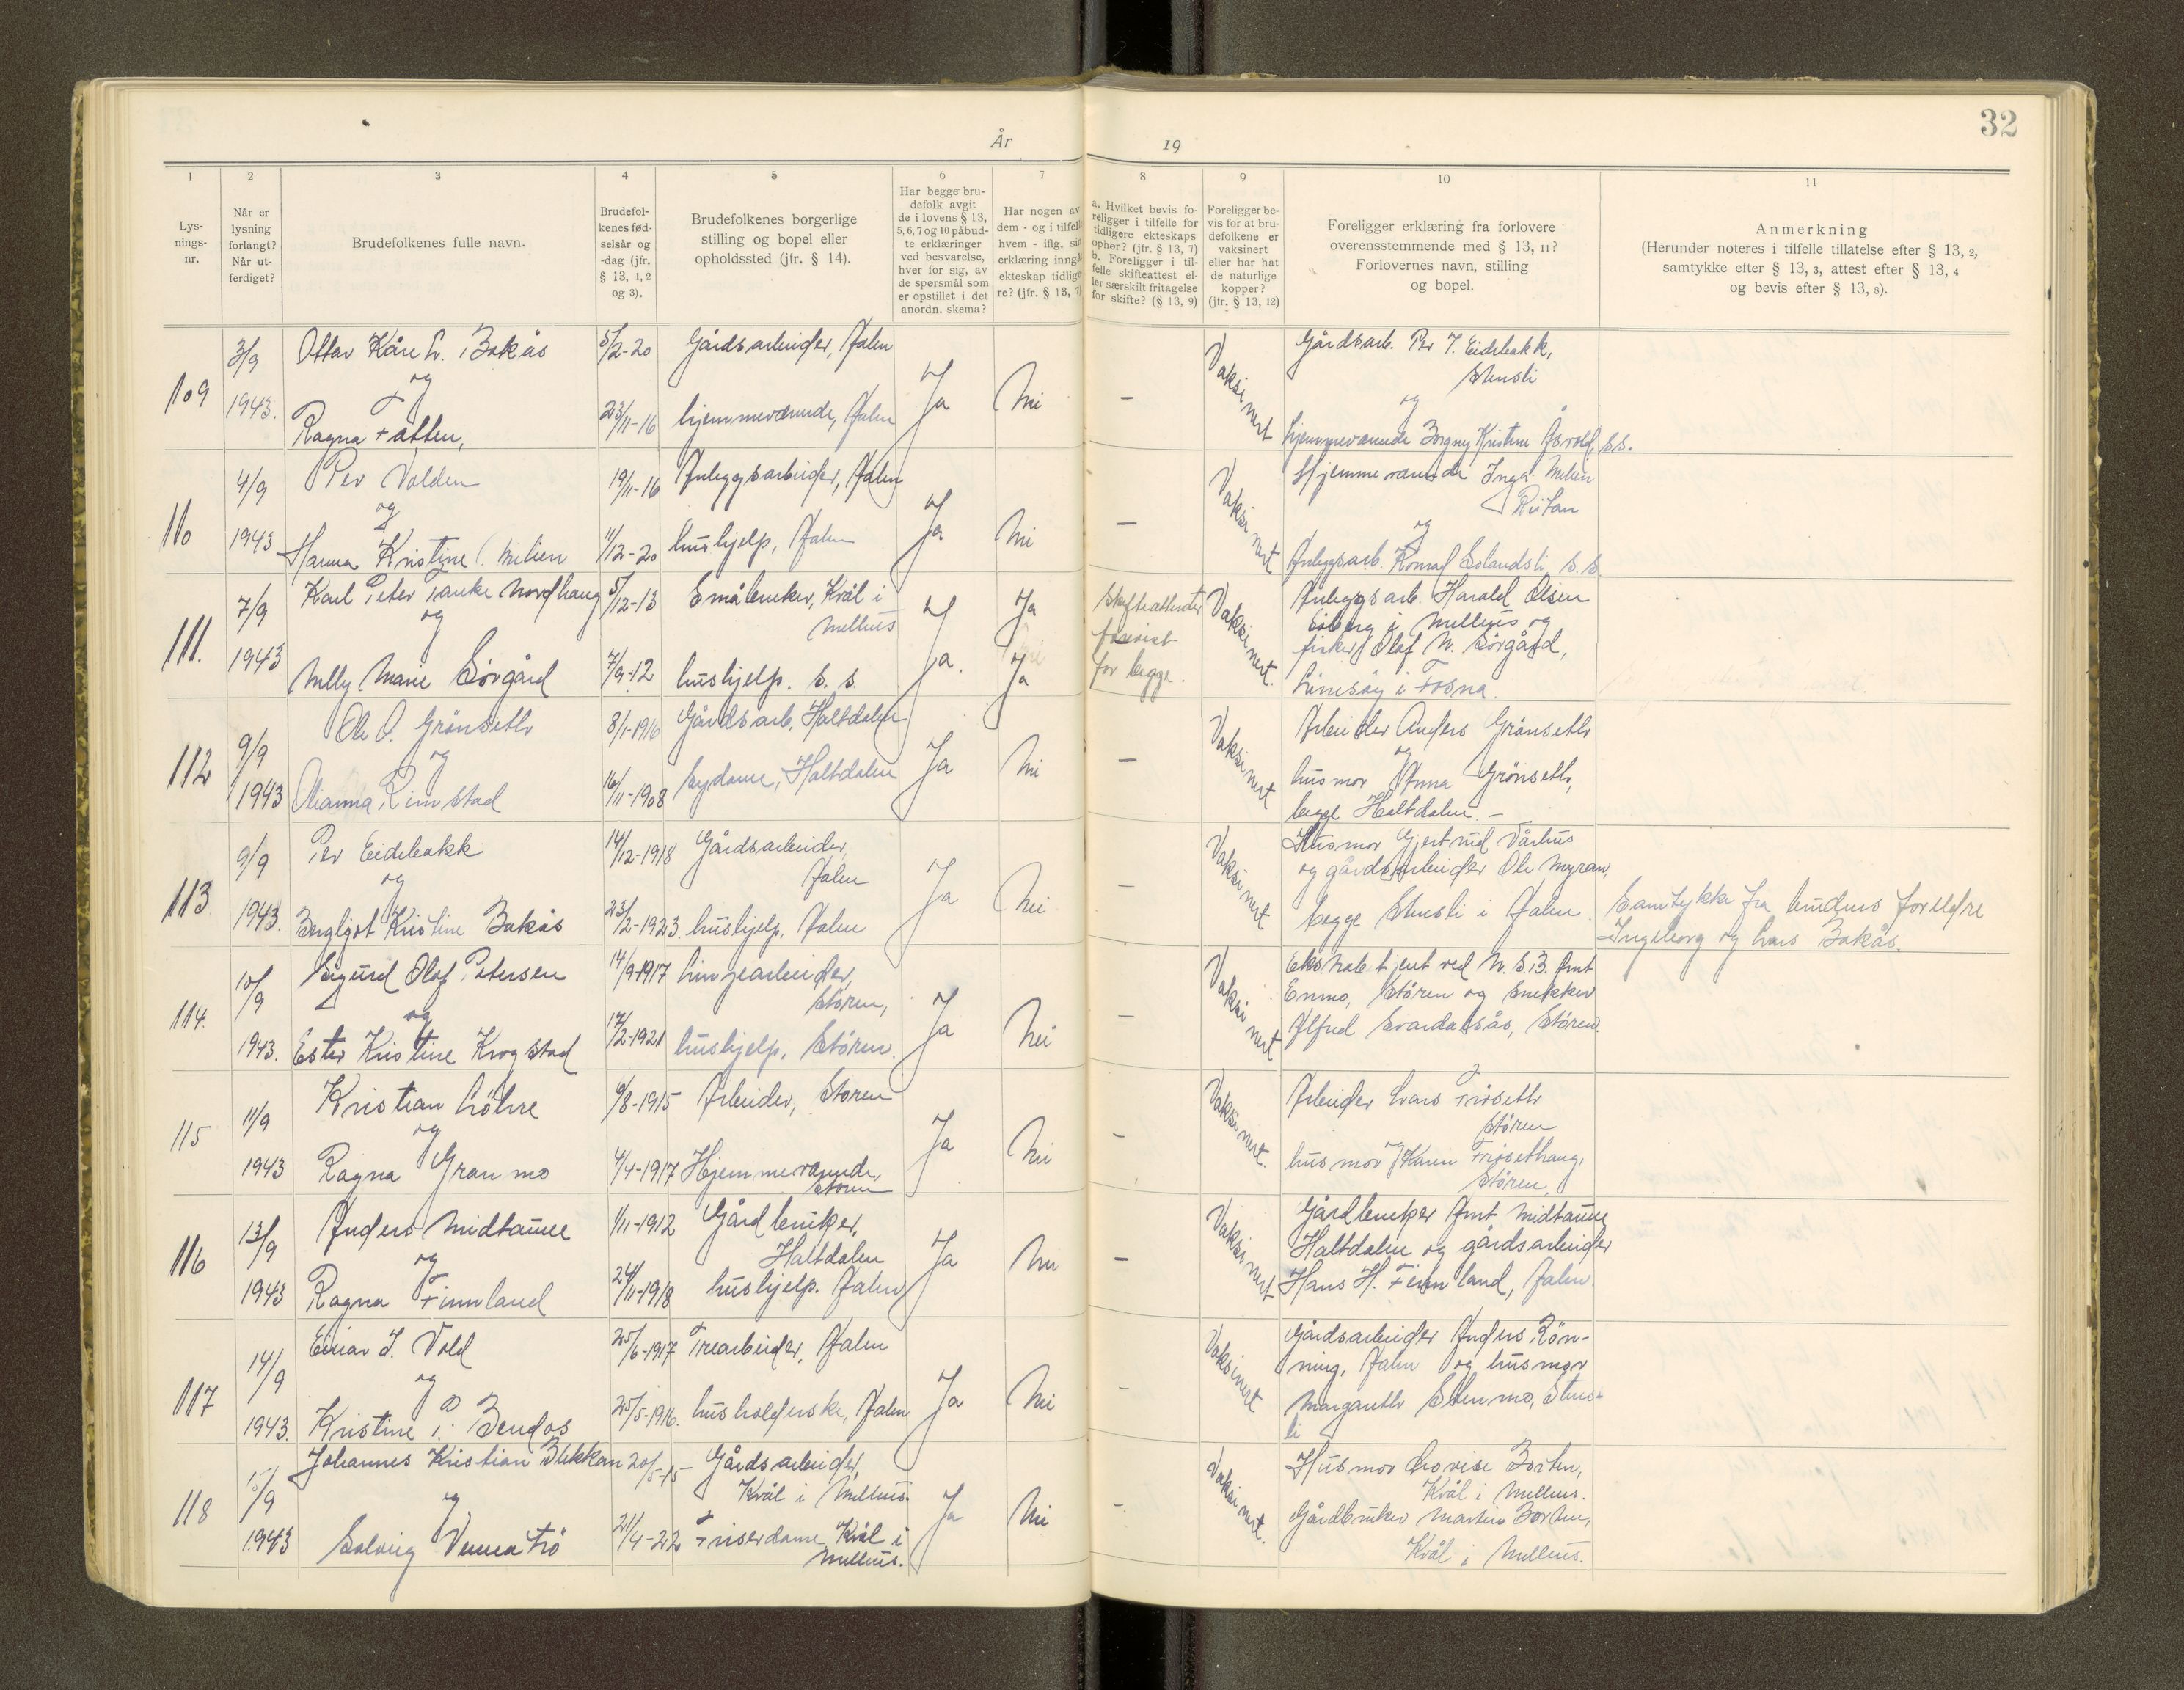 32
År 19
1
2
3
4
5
6
7
8
9
10
11
Lys-
nings-
nr.
Når er
lysning
forlangt?
Når ut-
ferdiget?
Brudefolkenes fulle navn.
Brudefol-
kenes fød-
selsår og
-dag (jfr.
§ 13, 1, 2
og 3).
Brudefolkenes borgerlige
stilling og bopel eller
opholdssted (jfr. § 14).
Har begge bru-
defolk avgit
de i lovens § 13,
5, 6, 7 og 10 påbud-
te erklæringer
ved besvarelse,
hver for sig, av
de spørsmål som
er opstillet i det
anordn. skema?
Har nogen av
dem - og i tilfelle
hvem - iflg. sin
erklæring inngå
ekteskap tidlige-
re? (jfr. § 13, 7)
a. Hvilket bevis fo-
religger i tilfelle for
tidligere ekteskaps
ophør? (jfr. § 13, 7)
b. Foreligger i til-
felle skifteattest el-
ler særskilt fritagelse
for skifte? (§ 13, 9)
Foreligger be-
vis for at bru-
defolkene er
vaksinert
eller har hat
de naturlige
kopper?
(jfr. § 13, 12)
Foreligger erklæring fra forlovere
overensstemmende med § 13, 11?
Forlovernes navn, stilling
og bopel.
Anmerkning
(Herunder noteres i tilfelle tillatelse efter § 13, 2,
samtykke efter § 13, 3, attest efter § 13, 4
og bevis efter § 13, 8).
109
3/9
1943.
Ottar Kåre L. Bakås
og
Ragna Fatten,
5/2-20
23/11-16
Gårdsarbeider, Ålen
hjemmeværende, Ålen
Ja
Nei
-
Vaksinert
Gårdsarb. Per J. Eidsbakk,
Stensli
og
hjemmeværende Borgny Kristine Åsvold, s.s.
110
4/9
1943
Per Volden
og
Hanna Kristine Melien
19/11-16
11/12-20
Anleggsarbeider, Ålen
hushjelp, Ålen
Ja
Nei
-
Vaksinert
Hjemmeværende Inga Melien
Reitan
og
Anleggsarb. Konrad s.s.
111.
7/9
1943
Karl Peter Tanke Nordhaug
og
Nelly Marie Sörgård
5/12-13
7/9-12
Småbruker, Kvål i
Melhus
hushjelp. s. s.
Ja.
Ja
Ja
Skifteattester
forevist
for begge.
Vaksinert.
Anleggsarb. Harald Olsen
i Melhus og
fisker Olaf N. Sörgård,
Linesöy i Fosna.
112
9/9
1943
Ole O. Grönseth
og
Olianna Rimstad
8/1-1916
16/11-1908
Gårdsarb. Haltdalen
sydame, Haltdalen
Ja
Nei
-
Vaksinert
Arbeider Anders Grönseth
og
husmor Anna Grönseth,
begge Haltdalen.-
113
9/9
1943.
Per Eidsbakk
og
Bergljot Kristine Bakås
14/12-1918
23/2-1923.
Gårdsarbeider,
Ålen
hushjelp, Ålen
Ja
Nei
-
Vaksinert
Husmor Gjertrud Vårhus
og gårdsarbeider Ole Myran,
begge Stensli i Ålen.
Samtykke fra brudens foreldre
Ingeborg og Lars Bakås.
114.
10/9
1943.
Sigurd Olaf Petersen
og
Ester Kristine Krogstad
14/9-1917
17/2-1921
Linjearbeider,
Stören,
hushjelp, Stören.
Ja
Nei
-
Vaksinert
Ekstrabetjent ved N.S.B. Arnt
Enmo, Stören og snekker
Alfred Svardalsås, Stören.
115
11/9
1943
Kristian Löhre
og
Ragna Granmo
6/8-1915
4/4-1917
Arbeider, Stören
Hjemmeværende,
Stören
Ja
Nei
-
Vaksinert.
Arbeider Lars Fröseth
Stören
og
husmor Karen Frösethaug,
Stören.
116
13/9
1943
Anders Midtaune
og
Ragna Finnland
1/11-1912
24/11-1918
Gårdbruker,
Haltdalen
hushjelp. Ålen
Ja
Nei
-
Vaksinert
Gårdbruker Arnt Midtaune
Haltdalen og gårdsarbeider
Hans H. Finnland, Ålen.
117
14/9
1943.
Einar J. Vold
og
Kristine P. Bendos
25/6-1917
25/5-1916.
Trearbeider, Ålen
husholderske, Ålen
Ja
Nei
-
Vaksinert
Gårdsarbeider Anders Rön-
ning, Ålen og husmor
Margarethe Stenmo, Stens-
li
118
15/9
1943
Johannes Kristian Blekkan
og
Solveig Vennatrö
20/5-15
21/4-22
Gårdsarbeider,
Kvål i Melhus.
Friserdame, Kvål i
Melhus.
Ja
Nei
-
Vaksinert.
Husmor Lovise Borten,
Kvål i Melhus.
Gårdbruker Martin Borten,
Kvål i Melhus.